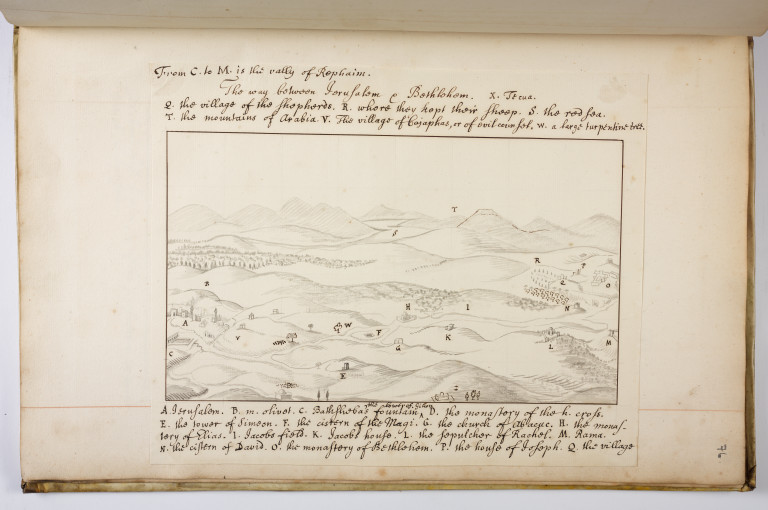 From C. to M. is the vally of Rephaim.
The way between Jerusalem & Bethlehem. X. Tecua.
Q. the village of the shepherds. R. where they kept their sheep. S. the red sea.
T. the mountains of Arabia. V. The village of Cajaphas, or of evil counsel. W. a large turpentine tree.
T
S
R
P
Q
O
B
H
I
N
A
W
V
F
K
M
G
L
C
E
A. Jerusalem. B. m. olivet. C. Bathsheba's fountain, the tower of D. the monastery of the h. cross.
E. the tower of Simeon. F. the cistern of the Magi. G. the church of Abacuc. H. the monas-
tery of Elias. I. Jacobs field. K. Jacobs house. L. the sepulcher of Rachel. M. Rama.
N. the cistern of David. O. the monastery of Bethlehem. P. the house of Joseph. Q. the village